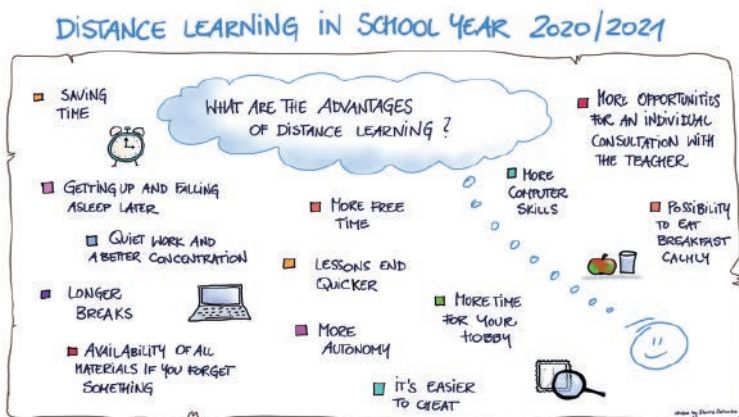 DISTANCE LEARNING IN SCHOOL YEAR 2020/2021
WHAT ARE THE ADVANTAGES
OF DISTANCE LEARNING?
SAVING
TIME
GETTING UP AND FALLING
ASLEEP LATER
QUIET WORK AND
A BETTER CONCENTRATION
LONGER
BREAKS
AVAILABILITY OF ALL
MATERIALS IF YOU FORGET
SOMETHING
MORE FREE
TIME
LESSONS END
QUICKER
MORE
AUTONOMY
IT'S EASIER
TO CHEAT
MORE
COMPUTER
SKILLS
MORE TIME
FOR YOUR
HOBBY
MORE OPPORTUNITIES
FOR AN INDIVIDUAL
CONSULTATION WITH
THE TEACHER
POSSIBILITY
TO EAT
BREAKFAST
CALMLY